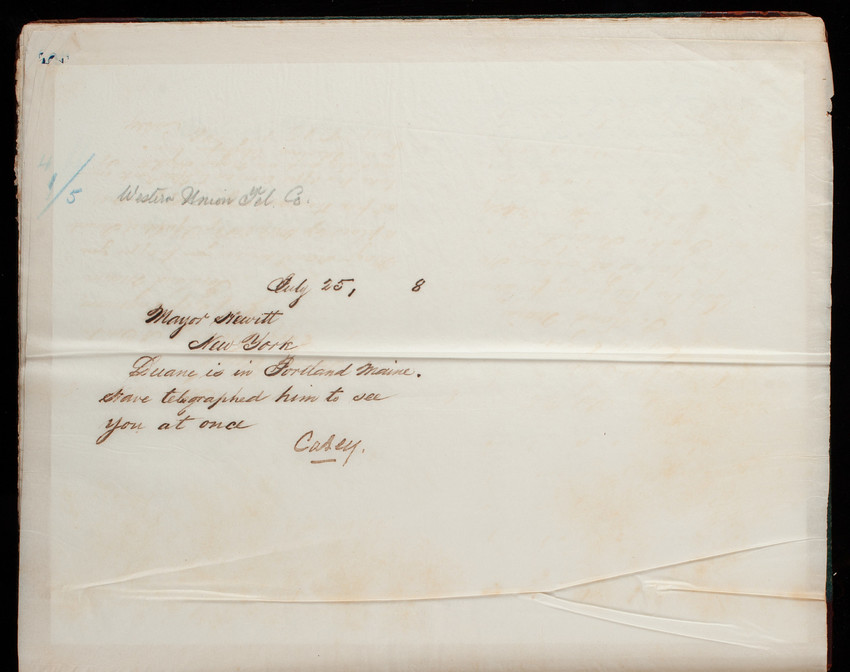 4/5
Western Union Tel. Co.
July 25, 8
Mayor Hewitt
New York
Duane is in Portland Maine.
Have telegraphed him to see
you at once
Casey.